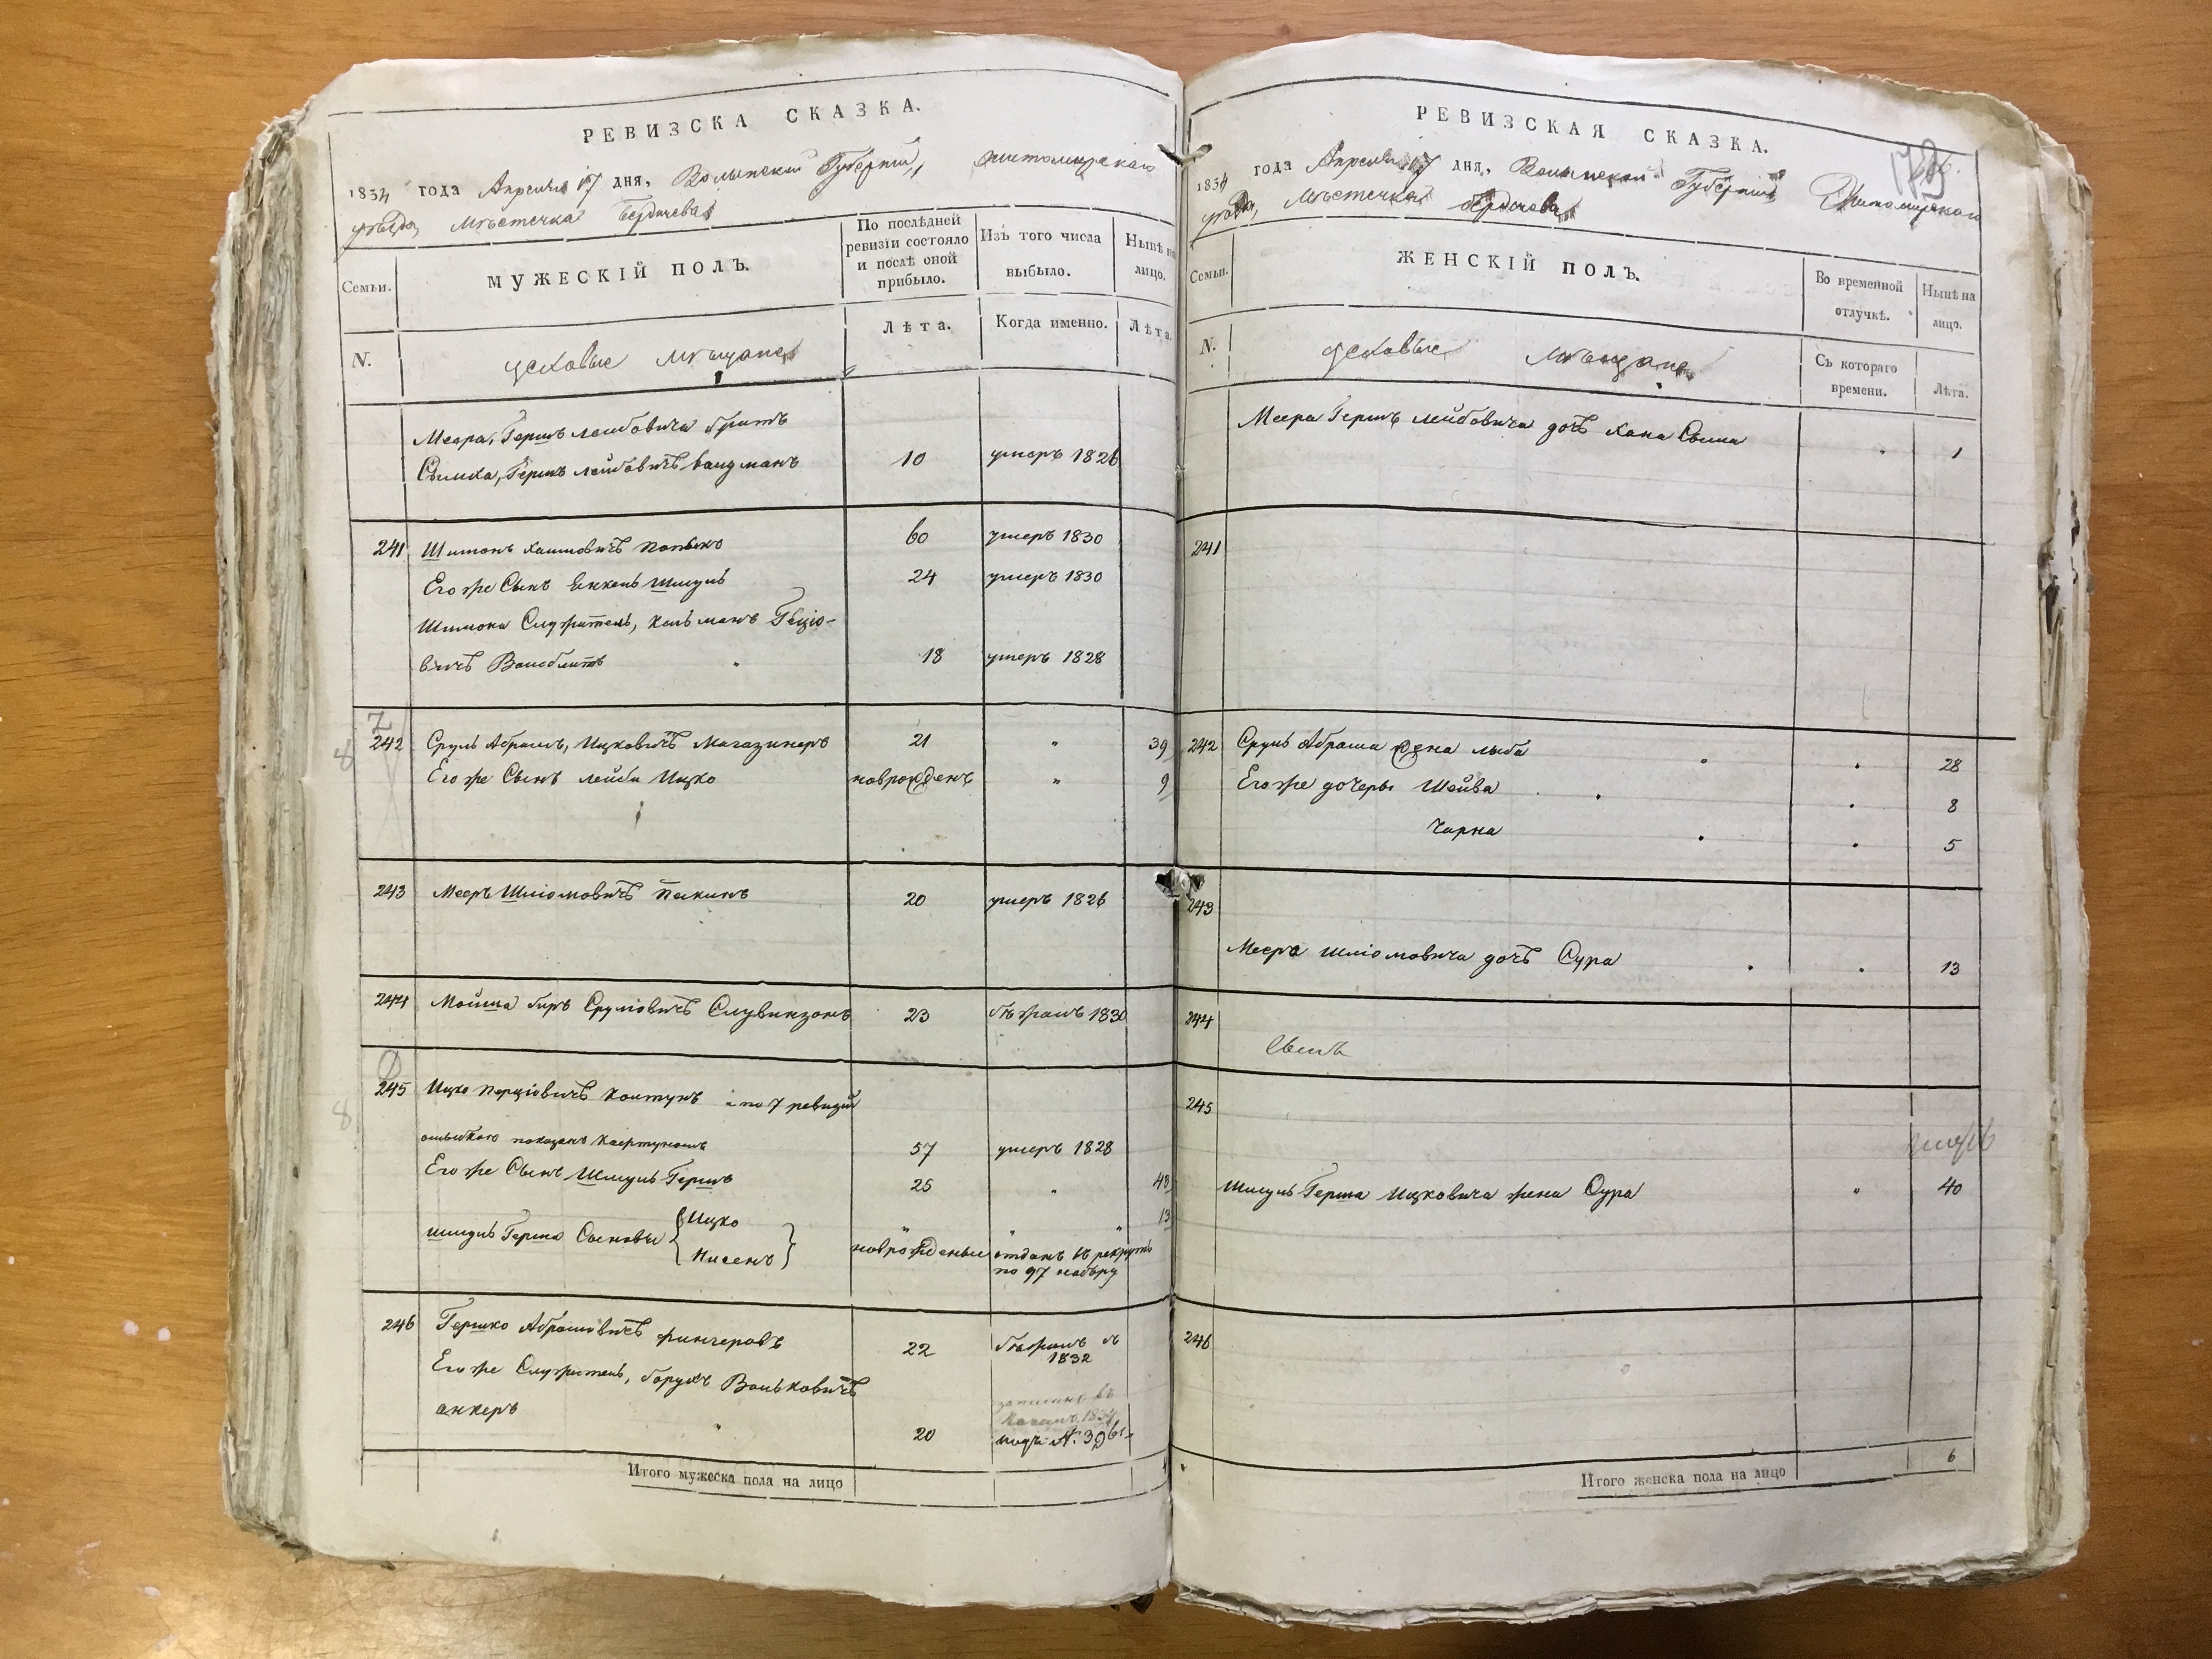 РЕВИЗСКА СКАЗКА.
1834 года Апреля 17 дня, Волынской Губернии, Житомирскаго
уезда, Мѣстечка Бердичева
Семьи.
МУЖЕСКІЙ ПОЛЪ.
По послѣдней
ревизіи состояло
и послѣ оной
прибыло.
Изъ того числа
выбыло.
Нынѣ на
лицо.
N.
Лѣта.
Когда именно.
Лѣта.
цеховые мѣщане
Меера, Гершъ Лейбовича братъ
Сымха, Гершъ Лейбовичъ 10 умеръ 1826
241 Шимонъ 60 умеръ 1830
Его же Сынъ Янкель Шмуль 24 умеръ 1830
Шимона Служитель, Кельманъ
вичъ 18 умеръ 1828
242 Сруль Абрамъ, Ицковичъ Магазинеръ 21 " 39
Его же Сынъ Лейби Ицко новорожденъ " 9
243 Мееръ Шліомовичъ 20 умеръ 1826
244 Мойша беръ Срулiовичъ 23 бѣжалъ 1830
245 Ицко Перціовичъ Контунъ а по 7 ревизіи
ошибкою показанъ 57 умеръ 1828
Его же Сынъ Шмуль Гершъ 25 "
Шмуль Герша Сыновьи Ицко " " " 13
Нисенъ новорожденые отданъ въ рекруты
по 97 набору
246 Гершко Абрамовичъ 22 бѣжалъ в
1832
Его же Служитель, Борухъ Вольковичъ
анкеръ " 20
записанъ въ
1834
подъ N. 39
Итого мужеска пола на лицо
РЕВИЗСКАЯ СКАЗКА.
1834 года Апреля 17 дня, Волынской Губернии, Житомирскаго
уезда, Мѣстечка Бердичева
Семьи.
ЖЕНСКІЙ ПОЛЪ.
Во временной
отлучкѣ.
Нынѣ на
лицо.
N.
Съ котораго
времени.
Лѣта.
цеховые мѣщане
Меера Гершъ Лейбовича дочь Хана Сыма " 1
241
242 Сруль Абрама жена Лыба " 28
Его же дочеры Шейва " 8
Чарна " 5
243
Меера Шліомовича дочь Сура " 13
244
245
Шмуль Герша Ицковича жена Сура " 40
246
Итого женска пола на лицо 6